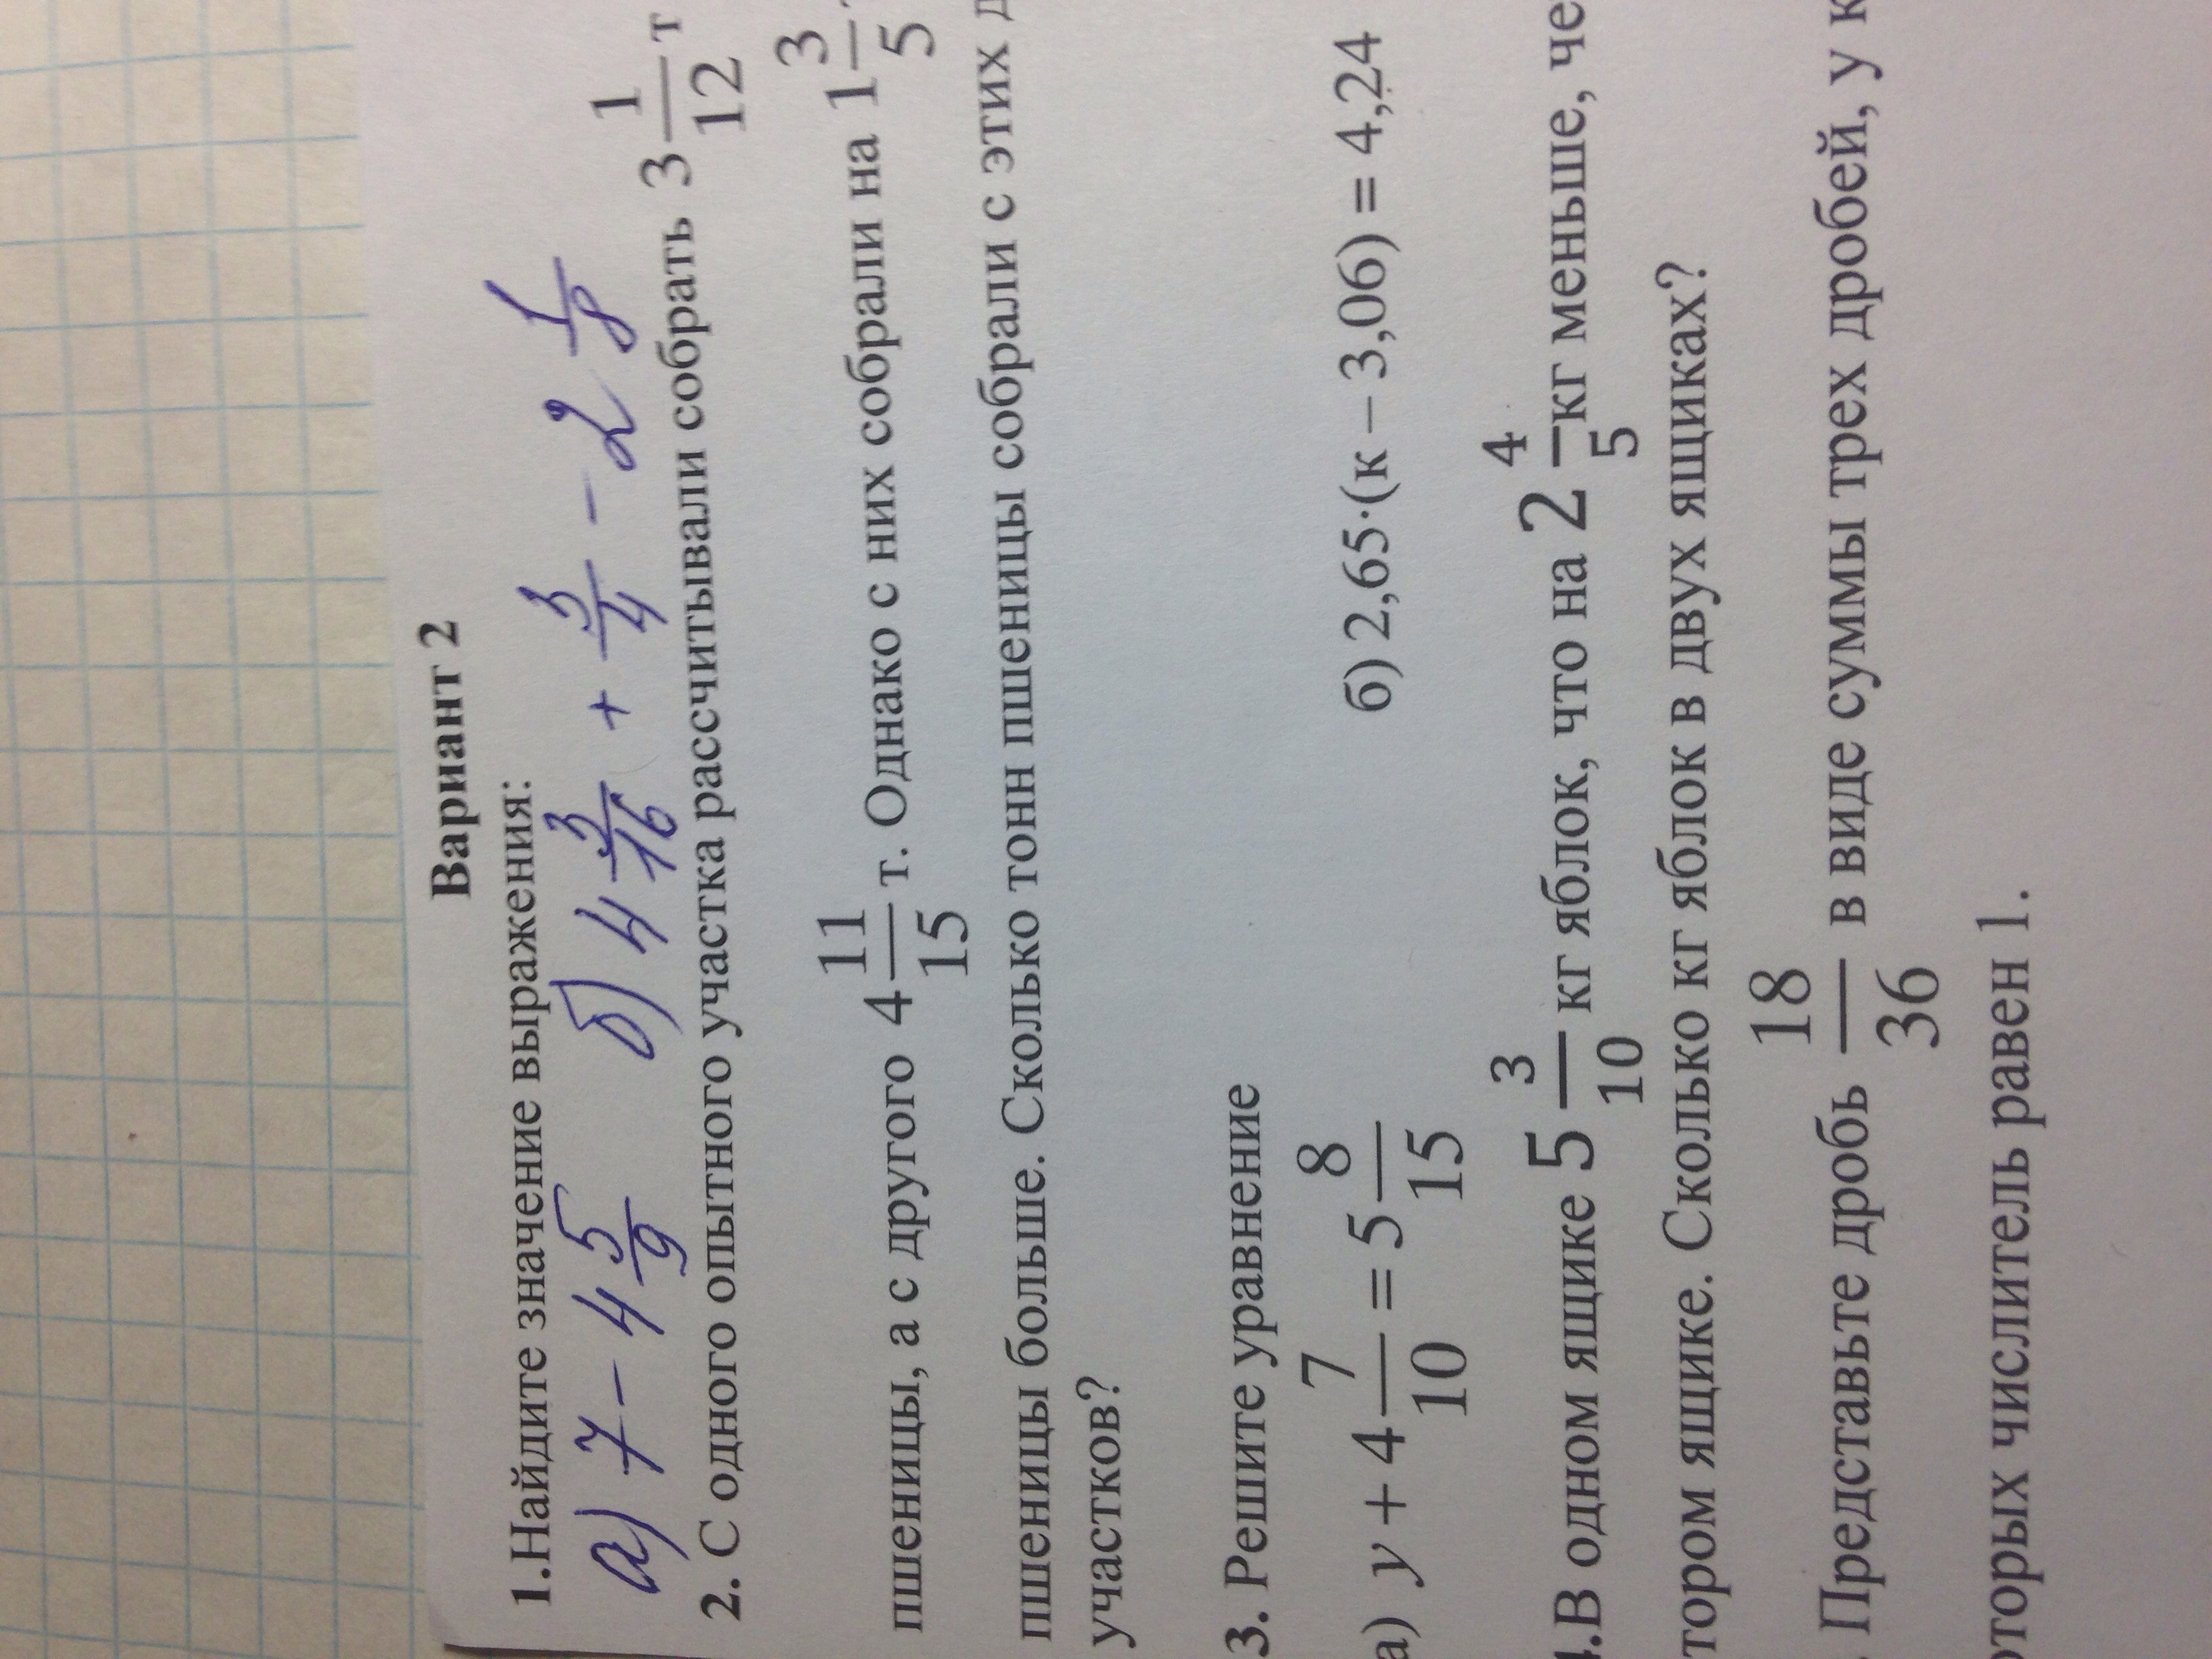 Вариант 2
1.Найдите значение выражения:
а) 7 - 4 5/9 б) 4 3/16 + 3/4 - 2 1/8
2. С одного опытного участка рассчитывали собрать 3 1/12 т
пшеницы, а с другого 4 11/15 т. Однако с них собрали на 1 3/5
пшеницы больше. Сколько тонн пшеницы собрали с этих
участков?
3. Решите уравнение
а) y + 4 7/10 = 5 8/15 б) 2,65·(к – 3,06) = 4,24
4.В одном ящике 5 3/10 кг яблок, что на 2 4/5 кг меньше, че
тором ящике. Сколько кг яблок в двух ящиках?
. Представьте дробь 18/36 в виде суммы трех дробей, у к
оторых числитель равен 1.